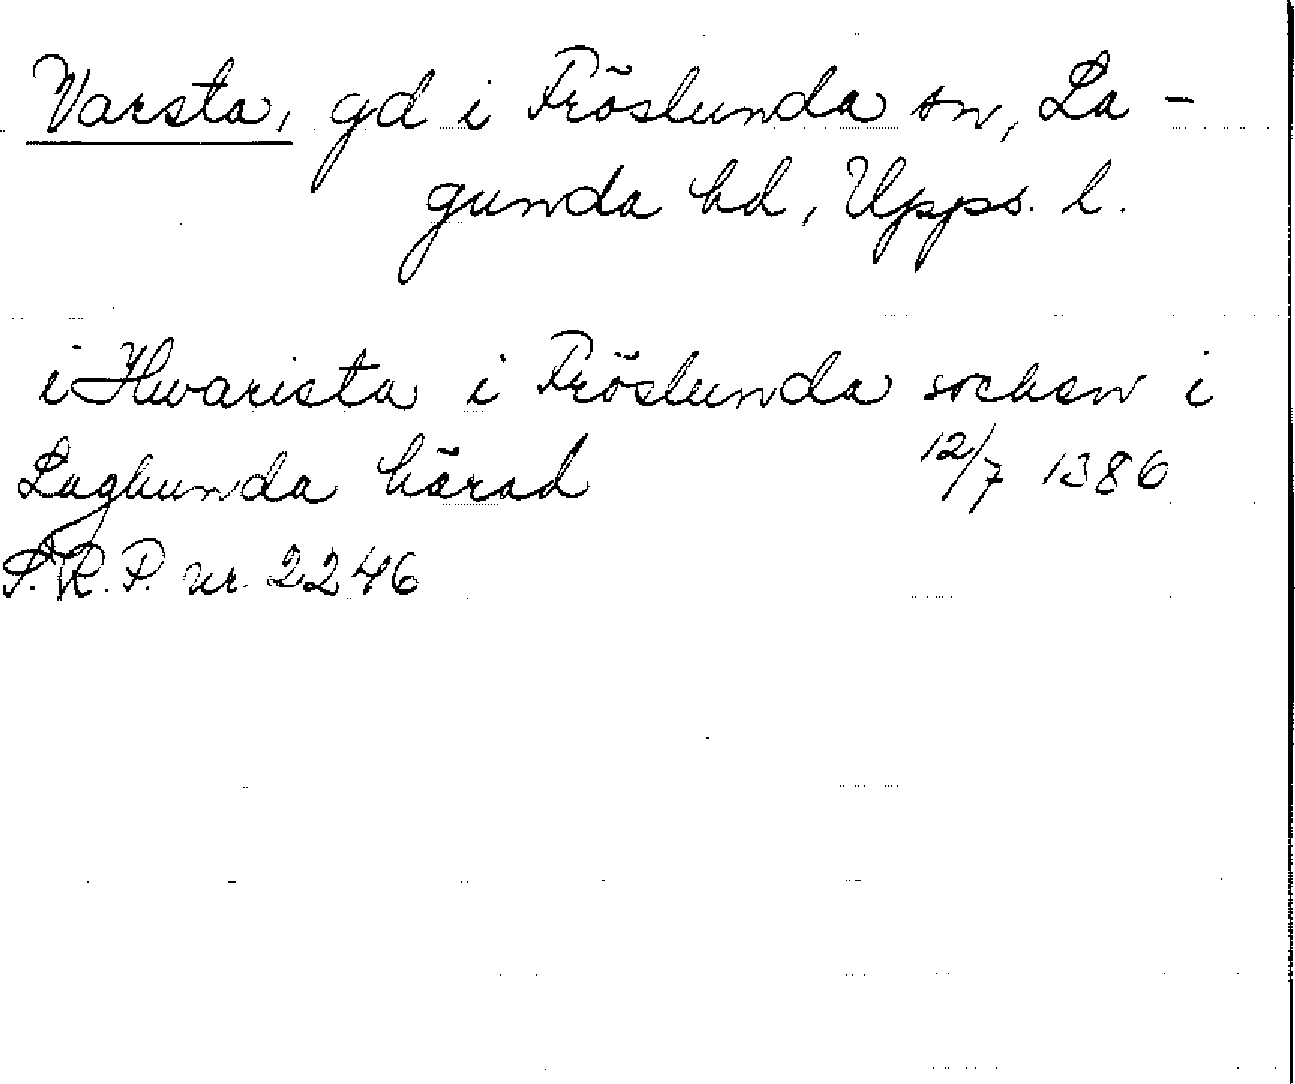 Varsta, gd i Fröslunda sn, La-
gunda hd, Upps. l.
i Hwarista i Fröslunda sochen i
Laghunda härad 12/7 1386
S.R.P. nr. 2246